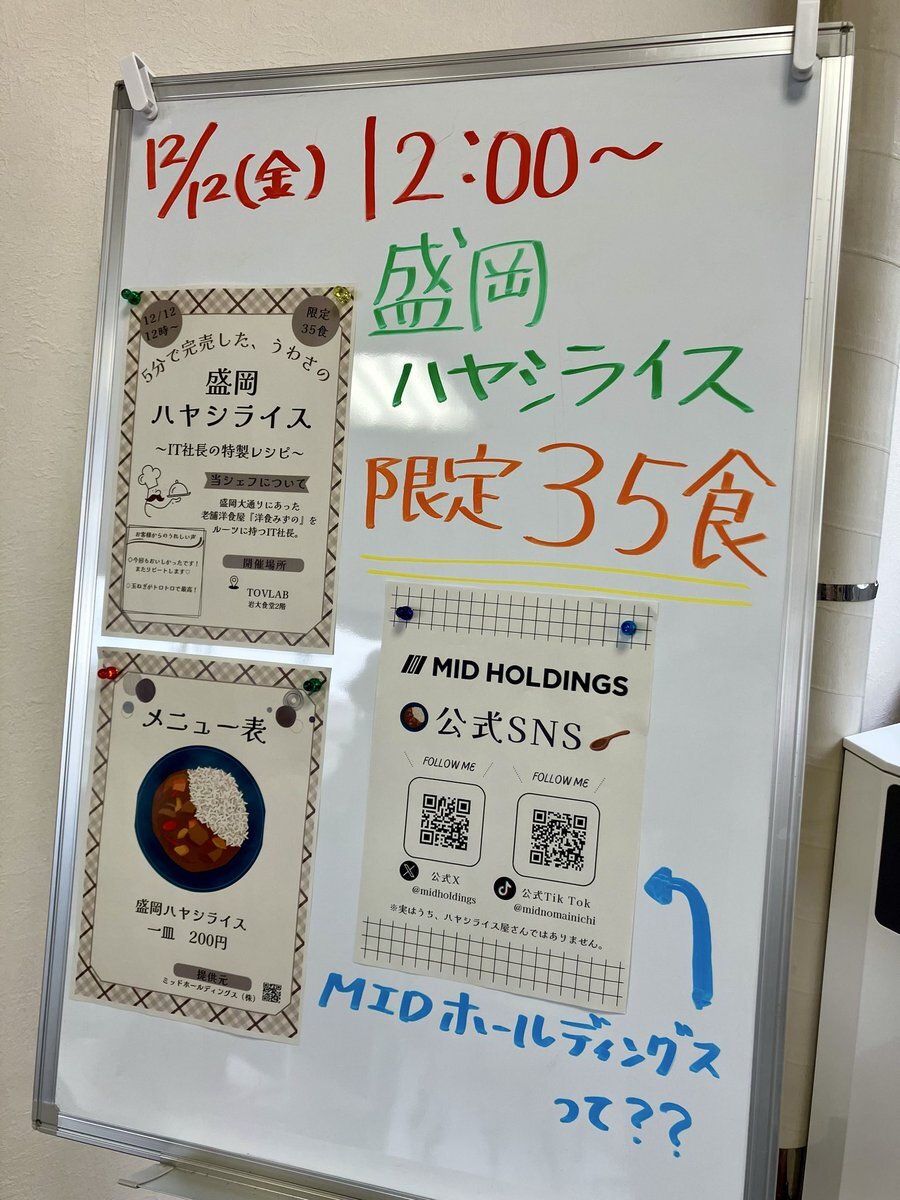 12/12(金) 12:00～
盛岡
ハヤシライス
限定35食
12/12
12時～
限定
35食
5分で完売した、うわさの
盛岡
ハヤシライス
～IT社長の特製レシピ～
当シェフについて
盛岡大通りにあった
老舗洋食屋『洋食みずの』を
ルーツに持つIT社長。
お客様からのうれしい声
◇今回もおいしかったです！
またリピートします♡
◇玉ねぎがトロトロで最高！
開催場所
TOVLAB
岩大食堂2階
メニュー表
盛岡ハヤシライス
一皿 200円
提供元
ミッドホールディングス（株）
MID HOLDINGS
公式SNS
FOLLOW ME
FOLLOW ME
公式X
@midholdings
公式Tik Tok
@midnomainichi
※実はうち、ハヤシライス屋さんではありません。
MIDホールディングス
って??